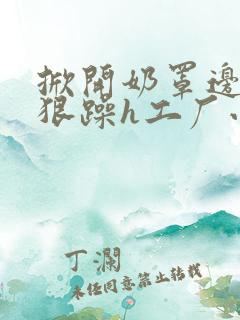 掀開奶罩邊
狠躁h工厂、
丁瀾
未经同意禁止转载